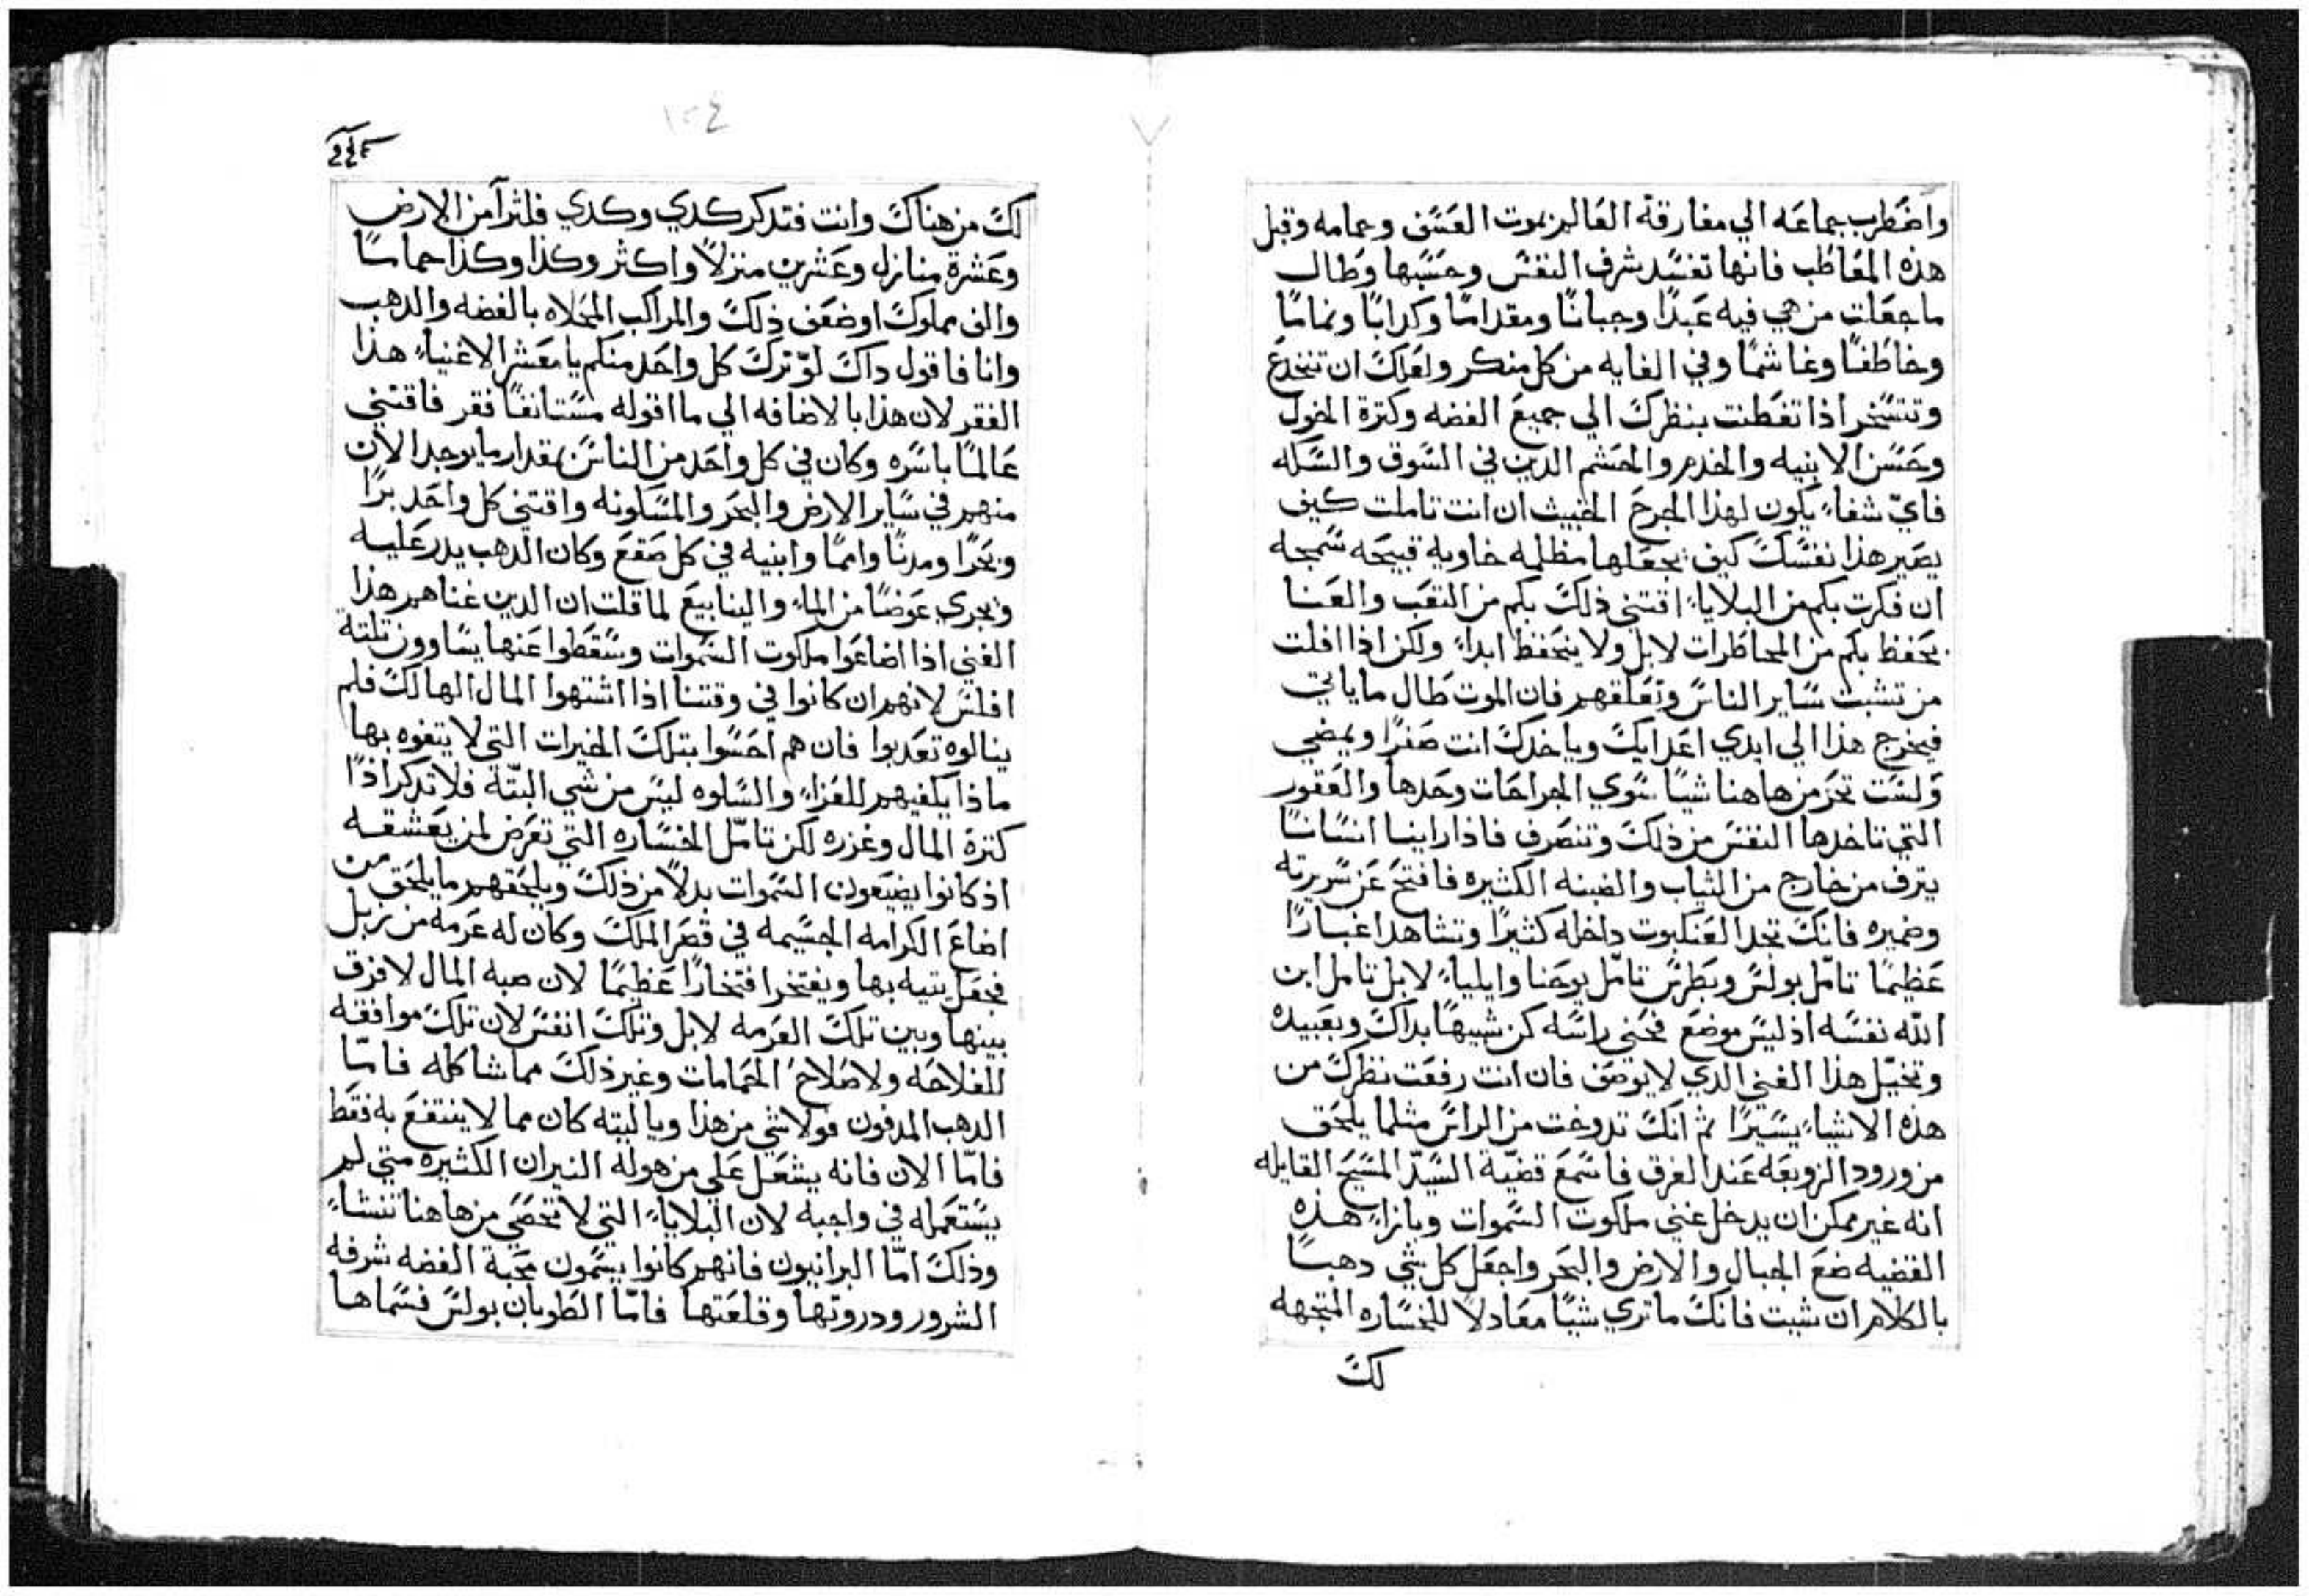 واضطرب جماعه الي مفارقة العالم بموت العسف وحمامه وقبل
هذه المعاطب فانها تفسد شرف النفس وحسبها وطال
ما جعلت من هي فيه عبدًا وجبانًا ومقدامًا وكدابًا ونمامًا
وخاطفًا وغاشمًا وفي الغايه من كل منكر ولعلك ان تنخدع
وتتسخر اذا تفطنت بنظرك الي جميع الفضه وكترة الخول
وحسن الابنيه والخدم والحشم الدين في السوق والسكه
فايّ شفاء يكون لهذا الجرح الخبيث ان انت تاملت كيف
يصير هذا نفسك كيف يجعلها مظلمه خاويه قبيحه سمجه
ان فكرت بكم من البلايا اقتني ذلك بكم من التعب والعنا
يحفظ بكم من المخاطرات لا بل ولا يتحفظ ابداء ولكن اذا افلت
من تشبت ساير الناس وتعلقهم فان الموت طال ما ياتي
فيخرج هذا الي ايدي اعدايك وياخدك انت صفرًا ويمضي
ولست تحر من هاهنا شيًا سوي الجراحات وحدها والعقور
التي تاخدها النفس من ذلك وتنصرف فاذا راينا انسانًا
يترف من خارج من التياب والضبنه الكثيره فافتح عن سريرته
وضميره فانك تجد العنكبوت داخله كثيرًا وتشاهد اغبارًا
عظيمًا تامّل بولس وبطرس تامّل يوحنا وايلياء لا بل تامل ابن
اللّه نفسه اذ ليس موضع فحني راسه كن شبيهًا بداك وبعبيده
وتخيّل هذا الغني الدي لا يوصف فان انت رفعت نظرك من
هذه الاشياء يسيرًا ثم انك تدوخت من الراس مثلما يلحق
من ورود الزوبعه عند الغرق فاسمع قضيّة السّيّد المسيح القايله
انه غير ممكن ان يدخل غني ملكوت السموات وبازاء هذه
القضيه ضع الجبال والارض والبحر واجعل كل شي دهبًا
بالكلام ان شيت فانك ما تري شيًا معادلًا للخساره المتجهه
لك
١٠٤
لك من هناك وانت فتدكر كدي وكدي فلترًا من الارض
وعشرة منازل وعشرين منزلًا واكثر وكذا وكذا حماسًا
والف مملوك او ضعف ذلك والمراكب المحلاه بالفضه والدهب
وانا فاقول داك لو ترك كل واحد منكم يا معشر الاغنياء هذا
الفقر لان هذا بالاضافه الي ما اقوله مستانفًا فقر فاقتني
عالمًا باسره وكان في كل واحد من الناس بمقدار ما يوجد الان
منهم في ساير الارض والبحر والمسكونه واقتني كل واحد برًا
وبحرًا ومدنًا وامما وابنيه في كل صقع وكان الدهب يدر عليه
ويجري عوضًا من الماء والينابيع لما قلت ان الدين غناهم هذا
الغني اذا اضاعوا ملكوت السموات وسقطوا عنها يساوون تلتة
افلس لانهم ان كانوا في وقتنا اذا اشتهوا المال الهالك فلم
ينالوه تعدبوا فان هم احسوا بتلك الخيرات التي لا يتفوه بها
ماذا يكفيهم للعزاء والسلوه ليس من شي البتّة فلا تدكر اذًا
كترة المال وغزره لكن تامّل الخساره التي تعرض لمن يعشقه
اذ كانوا يضيعون السموات بدلًا من ذلك ويلحقهم ما يلحق من
اضاع الكرامه الجسيمه في قصر الملك وكان له عرمه من زبل
فجعل يتيه بها ويفتخر افتخارًا عظيمًا لان صبه المال لا فرق
بينها وبين تلك العرمه لا بل وتلك انفس لان تلك موافقه
للفلاحه ولاصلاح الحمامات وغير ذلك مما شاكله فامّا
الدهب المدفون فولا شي من هذا ويا ليته كان مما لا ينتفع به فقط
فامّا الان فانه يشعل علي من هوله النيران الكثيره متي لم
يستعمله في واجبه لان البلاياء التي لا تحصي من هاهنا تنشاء
وذلك امّا البرانيون فانهم كانوا يسمون محبة الفضه شرفه
الشرور ودروتها وقلعتها فامّا الطوبان بولس فسماها